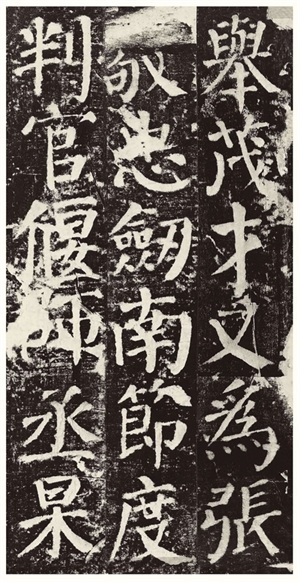 舉茂才又為張
敬忠劔南節度
判官偃師丞杲